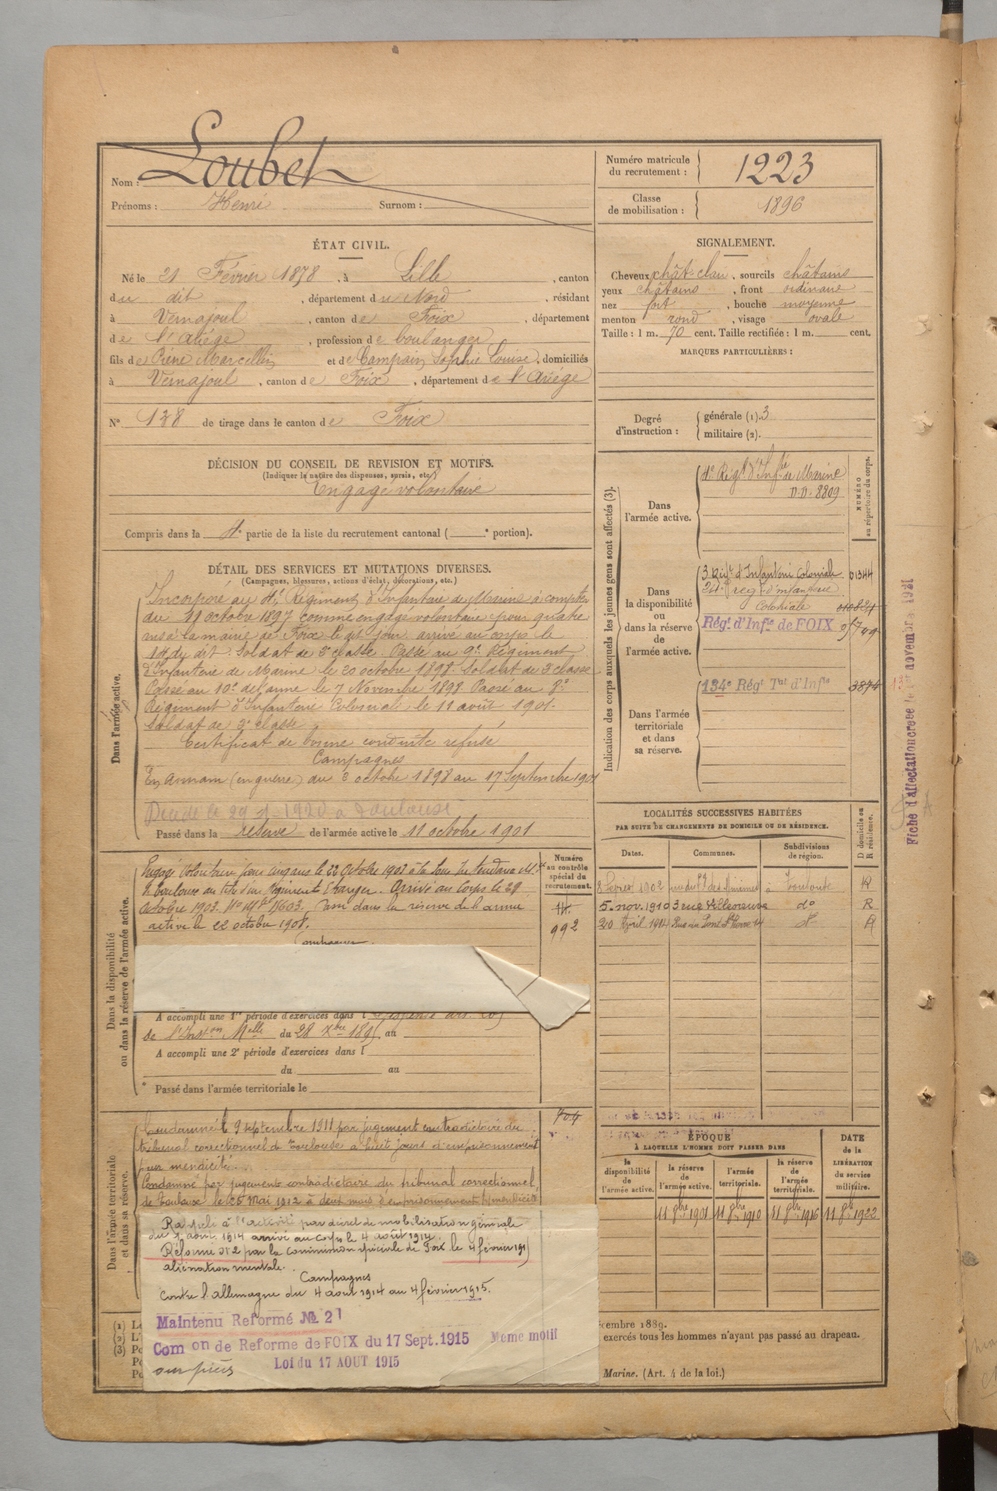 Nom : Loubet
Prénoms : Henri Surnom :
Numéro matricule du recrutement : 1223
Classe de mobilisation : 1896
ÉTAT CIVIL.
Né le 21 Février 1878, à Lille, canton
du dit, département du Nord, résidant
à Vernajoul, canton de Foix, département
de l'Ariège, profession de boulanger
fils de Marcellin et de Campain Sophie Louise, domiciliés
à Vernajoul, canton de Foix, département de l'Ariège
N° 138 de tirage dans le canton de Foix
SIGNALEMENT.
Cheveux chât-clair, sourcils châtains
yeux châtains, front ordinaire
nez fort, bouche moyenne
menton rond, visage ovale
Taille : 1 m. 70 cent. Taille rectifiée : 1 m. cent.
MARQUES PARTICULIÈRES :
Degré d'instruction : générale (1). 3
militaire (2).
DÉCISION DU CONSEIL DE REVISION ET MOTIFS.
(Indiquer la nature des dispenses, sursis, etc.)
Engagé volontaire
Compris dans la 4e partie de la liste du recrutement cantonal ( e portion).
DÉTAIL DES SERVICES ET MUTATIONS DIVERSES.
(Campagnes, blessures, actions d'éclat, décorations, etc.)
Dans l'armée active.
Incorporé au 4e Régiment d'Infanterie de Marine à compter
du 21 octobre 1897 comme engagé volontaire pour quatre
ans à la mairie de Foix le dit jour, arrivé au corps le
dit. Soldat de 2e classe. Passé au 9e Régiment
d'Infanterie de Marine le 20 octobre 1898 Soldat de 2 classe
Passé au 10e de Marine le 7 Novembre 1898 Passé au 8e
Régiment d'Infanterie Colonial le 11 août 1901.
Soldat de 2e classe
Certificat de bonne conduite refusé
Campagnes
En Annam (en guerre) du octobre 1898 au 17 Septembre 1901
Décédé le 29 1920 à Toulouse
Passé dans la réserve de l'armée active le 11 octobre 1901
Indication des corps auxquels les jeunes gens sont affectés (3).
NUMÉRO au répertoire du corps.
Dans l'armée active.
4e Régt d'Inf. de Marine
8809
Dans la disponibilité ou dans la réserve de l'armée active.
3 Régt d'Infanterie Coloniale 01344
régt d'infanterie
Coloniale
Régt. d'Infie de FOIX
Dans l'armée territoriale et dans sa réserve.
134e Régt Tal d'Infie 3874
Fiche d'affectation novembre 1921
LOCALITÉS SUCCESSIVES HABITÉES
PAR SUITE DE CHANGEMENTS DE DOMICILE OU DE RÉSIDENCE.
Dates. Communes. Subdivisions de région. D domicile ou R résidence.
Février 1902 rue des Minimes à Toulouse R
5 nov. 1910 3 rue Villeneuve do R
20 Avril 1914 Rue du Pont St Pierre 14 do R
Dans la disponibilité ou dans la réserve de l'armée active.
Numéro au contrôle spécial du recrutement.
992
Engagé volontaire pour cinq ans le 22 Octobre 1903 à la Sous Intendance Mre
de Toulouse au titre du Régiment Etranger. Arrivé au Corps le 28
Octobre 1903. No Mle 17603. Passé dans la réserve de l'armée
active le 22 octobre 1908.
A accompli une 1re période d'exercices dans l
du 28 Xbre 1895 au
A accompli une 2e période d'exercices dans l
du au
Passé dans l'armée territoriale le
Dans l'armée territoriale et dans sa réserve.
704
Condamné le 9 septembre 1911 par jugement contradictoire du
tribunal correctionnel de Toulouse à huit jours d'emprisonnement
pour mendicité.
Condamné par jugement contradictoire du tribunal correctionnel
de Toulouse le 25 Mai 1912 à deux mois d'emprisonnement p. mendicité
Rappelé à l'activité par décret de mobilisation générale
du 1 août 1914 arrivé au corps le 4 août 1914.
Réformé No 2 par la Commission spéciale de Foix le 4 février 1915
aliénation mentale.
Campagnes
Contre l'Allemagne du 4 août 1914 au 4 février 1915.
Maintenu Reformé No 2
Com on de Reforme de FOIX du 17 Sept. 1915 Même motif
Loi du 17 AOUT 1915
sur pièces
ÉPOQUE
À LAQUELLE L'HOMME DOIT PASSER DANS
DATE de la LIBÉRATION du service militaire.
la disponibilité de l'armée active. la réserve de l'armée active. l'armée territoriale. la réserve de l'armée territoriale.
11 8bre 1901 11 8bre 1910 11 8bre 1916 11 8bre 1922
(1)
(2)
(3)
cembre 1889.
exercés tous les hommes n'ayant pas passé au drapeau.
Marine. (Art. 4 de la loi.)